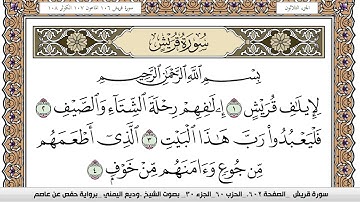 الجزء الثلاثون
سورة قريش ١٠٦ الماعون ١٠٧ الكوثر ١٠٨
سُورَةُ قُرَيْشٍ
بِسْمِ ٱللَّهِ ٱلرَّحْمَٰنِ ٱلرَّحِيمِ
لِإِيلَٰفِ قُرَيْشٍ ١ إِۦلَٰفِهِمْ رِحْلَةَ ٱلشِّتَآءِ وَٱلصَّيْفِ ٢
فَلْيَعْبُدُوا۟ رَبَّ هَٰذَا ٱلْبَيْتِ ٣ ٱلَّذِىٓ أَطْعَمَهُم
مِّن جُوعٍ وَءَامَنَهُم مِّنْ خَوْفٍۭ ٤
سورة قريش _الصفحة ٦٠٢_ الحزب ٦٠_الجزء ٣٠_ بصوت الشيخ .وديع اليمني _برواية حفص عن عاصم